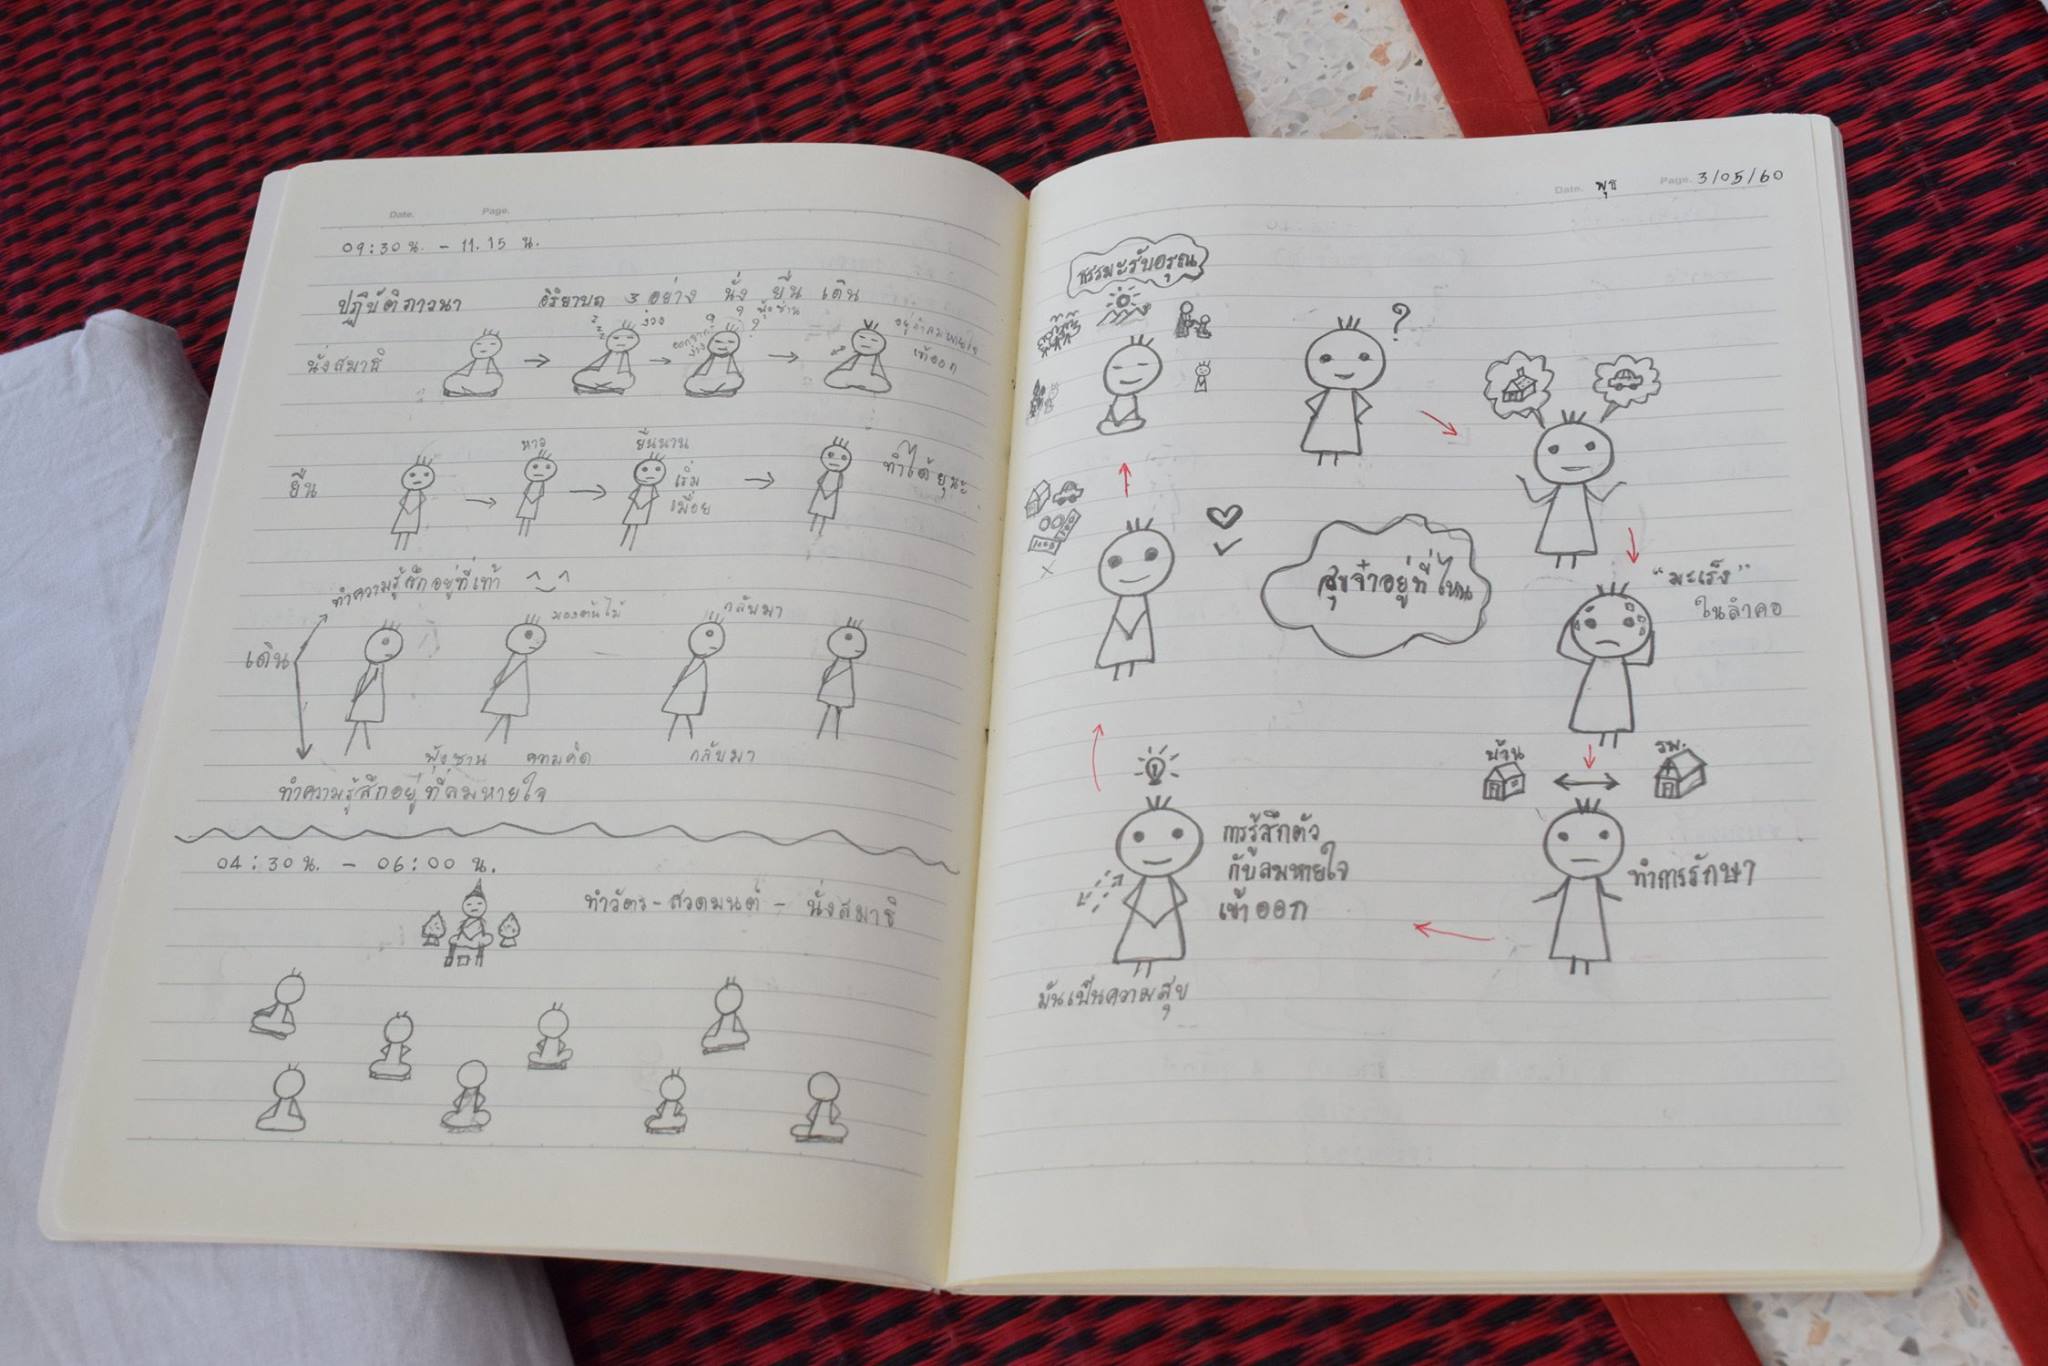 Date. Page.
09:30 น. - 11.15 น.
ปฏิบัติภาวนา อิริยาบถ 3 อย่าง นั่ง ยืน เดิน
นั่งสมาธิ
zzz ง่วง
ออกจากง่วง
? ? ฟุ้งซ่าน ?
อยู่กับลมหายใจ
เข้าออก
ยืน
หาว
ยืนนาน
เริ่ม
เมื่อย
ทำได้อยู่นะ
ทำความรู้สึกอยู่ที่เท้า
เดิน
มองต้นไม้
กลับมา
ฟุ้งซ่าน ความคิด
กลับมา
ทำความรู้สึกอยู่ที่ลมหายใจ
04:30 น. - 06:00 น.
ทำวัตร - สวดมนต์ - นั่งสมาธิ
Date. พุธ Page. 3/05/60
ธรรมะรับอรุณ
?
"มะเร็ง"
ในลำคอ
สุขจ๋าอยู่ที่ไหน
บ้าน
รพ.
ทำการรักษา
การรู้สึกตัว
กับลมหายใจ
เข้าออก
มันเป็นความสุข